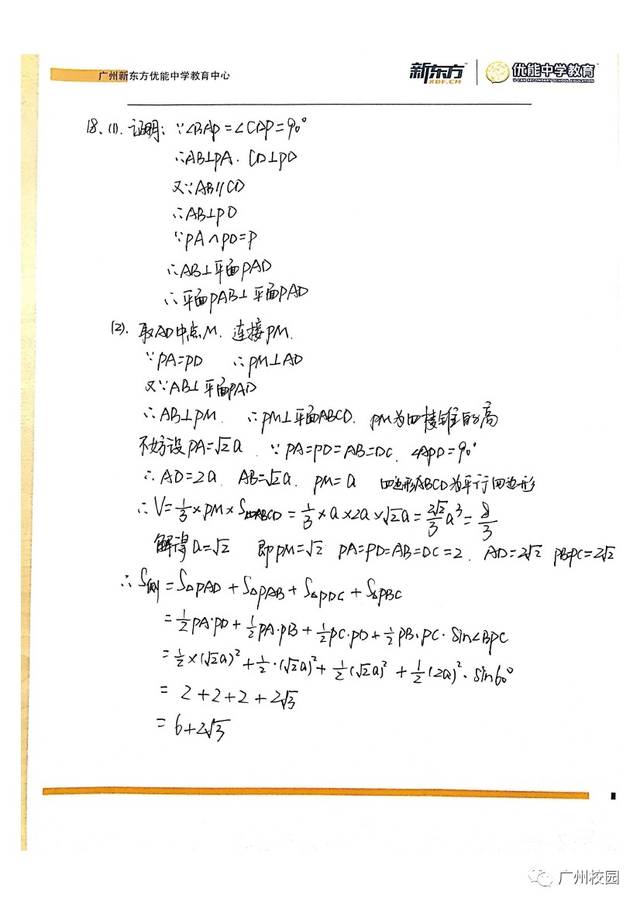 广州新东方优能中学教育中心 新东方 XDF.CN 优能中学教育
18、(1). 证明：∵∠BAP=∠CDP=90°
∴AB⊥PA．CD⊥PD
又∵AB∥CD
∴AB⊥PD
∵PA∩PD=P
∴AB⊥平面PAD
∴平面PAB⊥平面PAD
(2)．取AD中点M．连接PM．
∵PA=PD ∴PM⊥AD
又∵AB⊥平面PAD
∴AB⊥PM． ∴PM⊥平面ABCD． PM为四棱锥的高
不妨设PA=√2a． ∵PA=PD=AB=DC．∠APD=90°
∴AD=2a． AB=√2a． PM=a 四边形ABCD为平行四边形
∴V=1/3×PM×S▱ABCD=1/3×a×2a×√2a=2√2/3a³=8/3
解得a=√2 即PM=√2 PA=PD=AB=DC=2． AD=2√2 PB=PC=2√2
∴S侧=S△PAD+S△PAB+S△PDC+S△PBC
=1/2PA·PD+1/2PA·PB+1/2PC·PD+1/2PB·PC·sin∠BPC
=1/2×(√2a)²+1/2·(√2a)²+1/2(√2a)²+1/2(2a)²·sin60°
=2+2+2+2√3
=6+2√3
广州校园